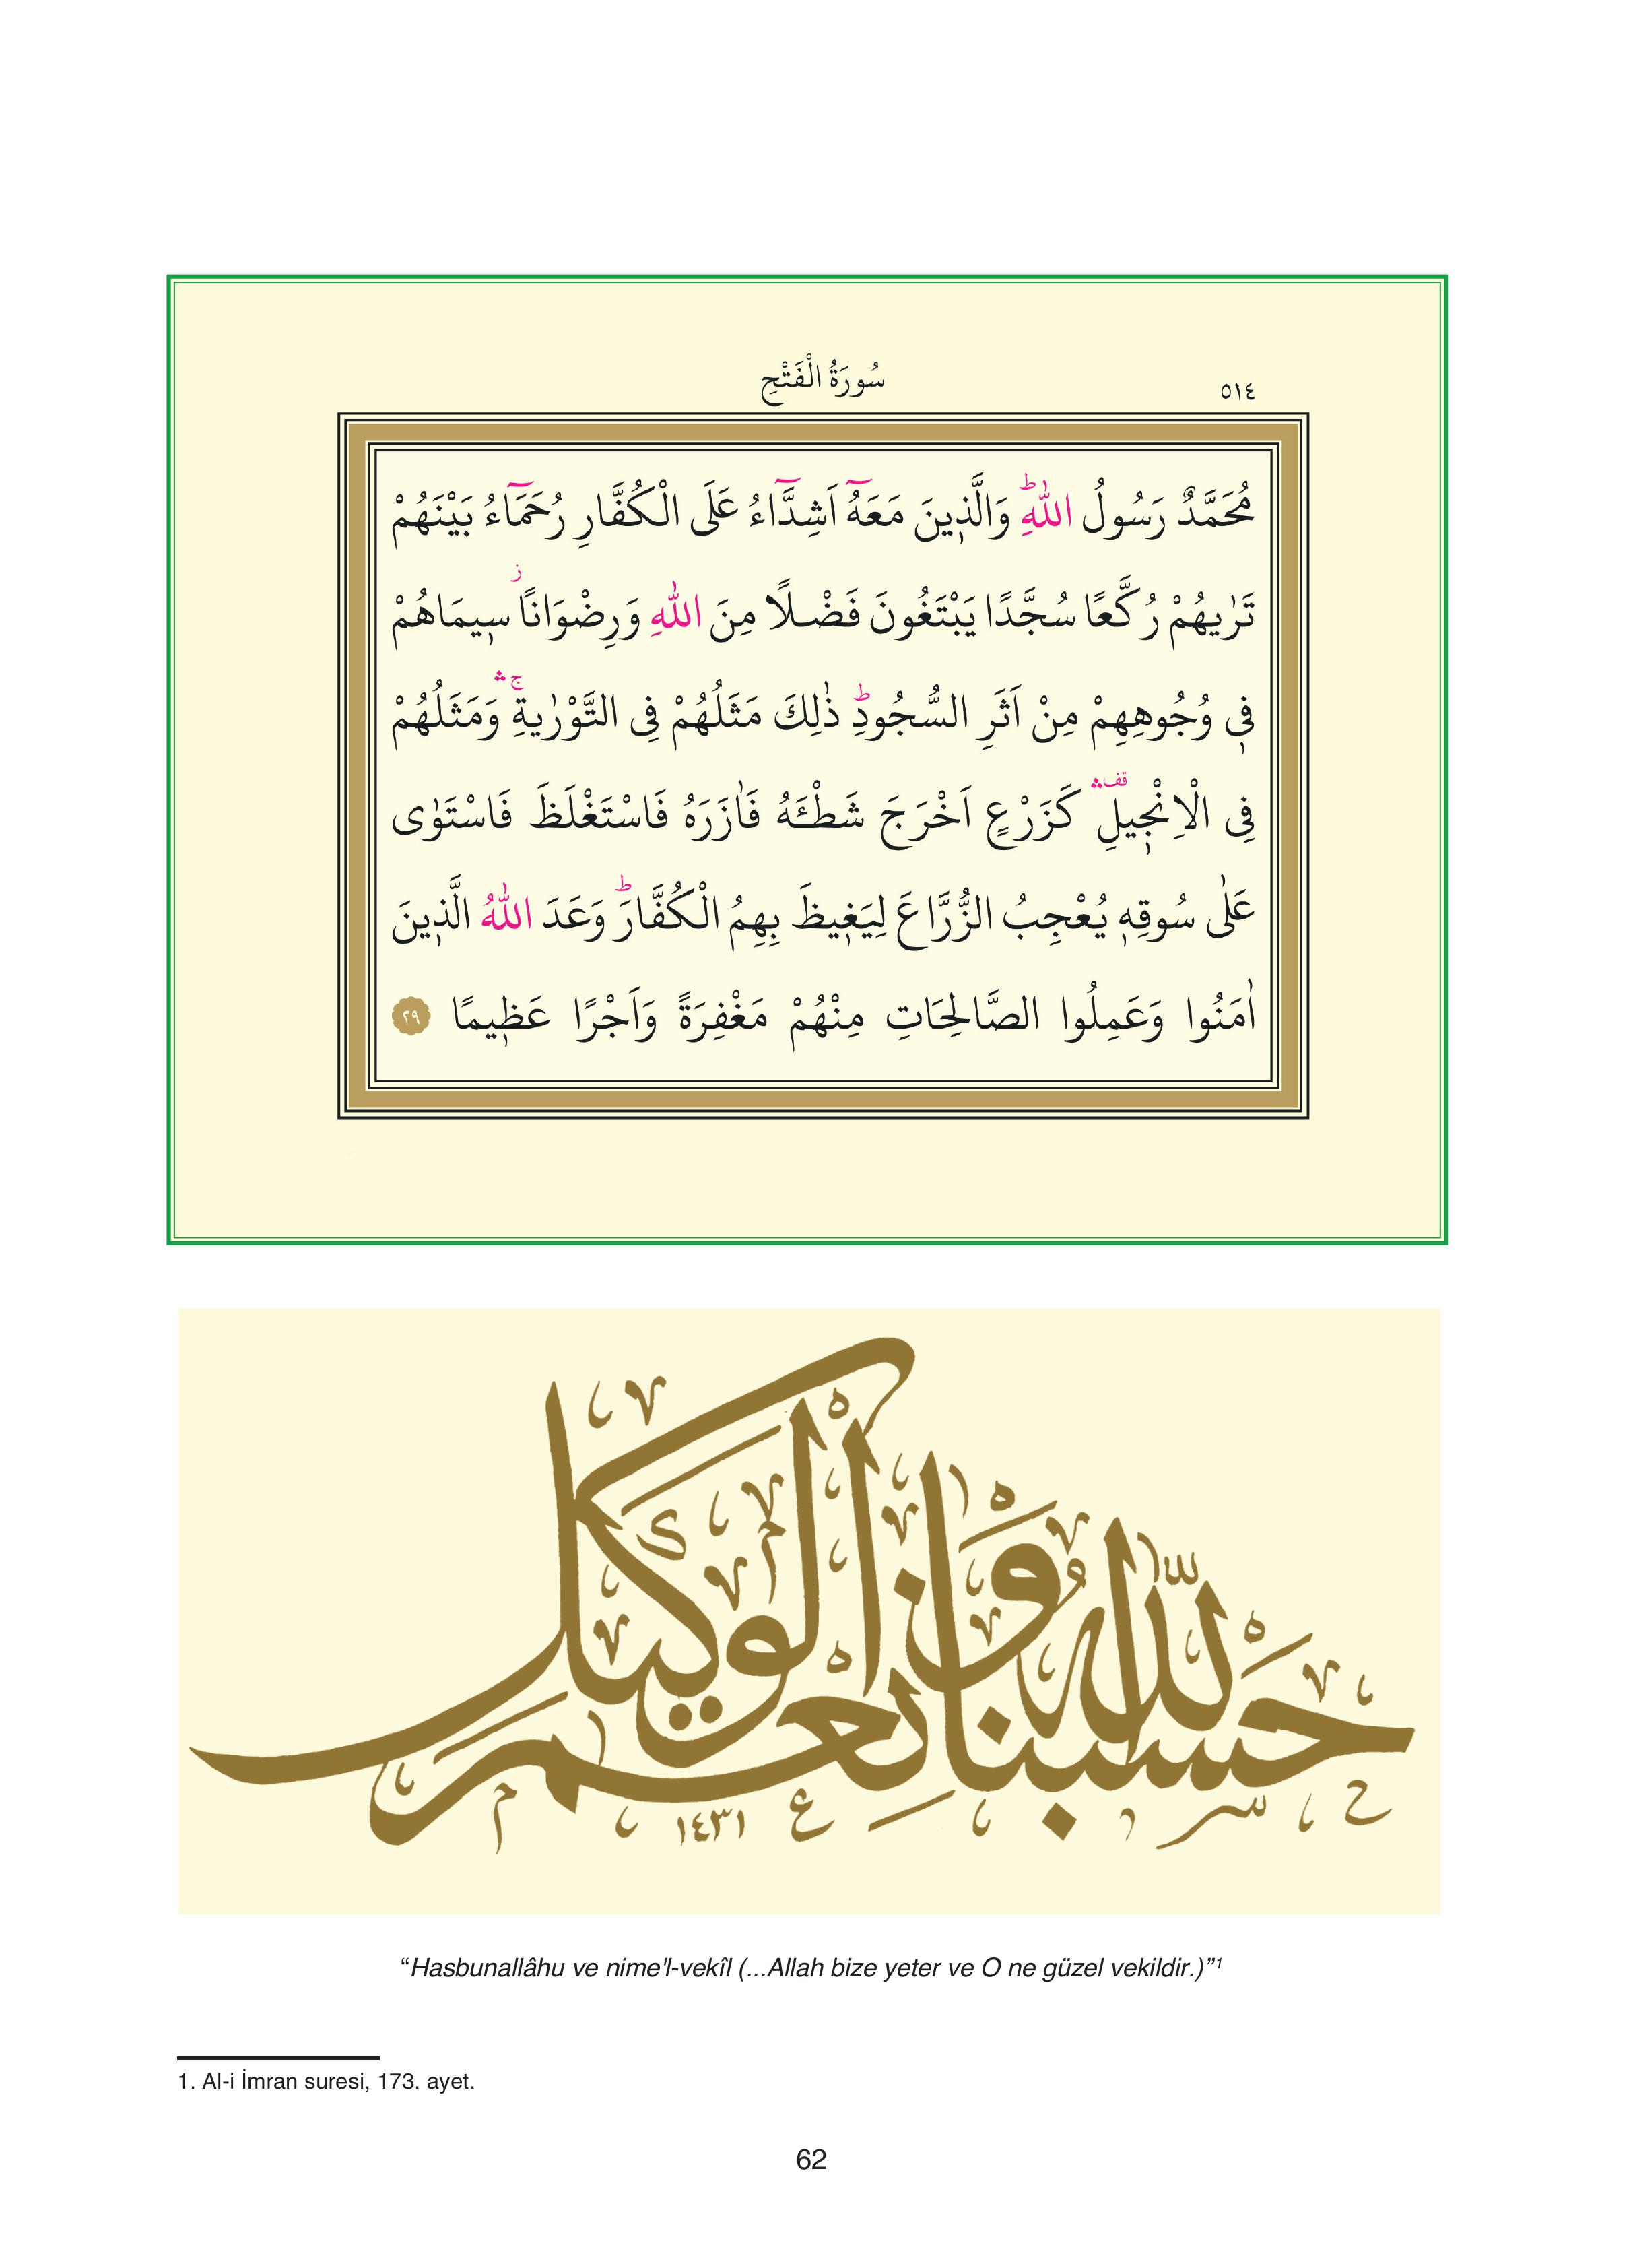 سُورَةُ الْفَتْحِ
٥١٤
مُحَمَّدٌ رَسُولُ اللّٰهِۜ وَالَّذ۪ينَ مَعَهُٓ اَشِدَّٓاءُ عَلَى الْكُفَّارِ رُحَمَٓاءُ بَيْنَهُمْ
تَرٰيهُمْ رُكَّعًا سُجَّدًا يَبْتَغُونَ فَضْلًا مِنَ اللّٰهِ وَرِضْوَانًاۘ س۪يمَاهُمْ
ف۪ي وُجُوهِهِمْ مِنْ اَثَرِ السُّجُودِۜ ذٰلِكَ مَثَلُهُمْ فِي التَّوْرٰيةِۚۛ وَمَثَلُهُمْ
فِي الْاِنْج۪يلِ۠ۛ كَزَرْعٍ اَخْرَجَ شَطْـَٔهُ فَاٰزَرَهُ فَاسْتَغْلَظَ فَاسْتَوٰى
عَلٰى سُوقِه۪ يُعْجِبُ الزُّرَّاعَ لِيَغ۪يظَ بِهِمُ الْكُفَّارَۜ وَعَدَ اللّٰهُ الَّذ۪ينَ
اٰمَنُوا وَعَمِلُوا الصَّالِحَاتِ مِنْهُمْ مَغْفِرَةً وَاَجْرًا عَظ۪يمًا ٢٩
حَسْبُنَا اللّٰهُ وَنِعْمَ الْوَك۪يلُ
١٤٣١
“Hasbunallâhu ve nime'l-vekîl (...Allah bize yeter ve O ne güzel vekildir.)”1
1. Al-i İmran suresi, 173. ayet.
62